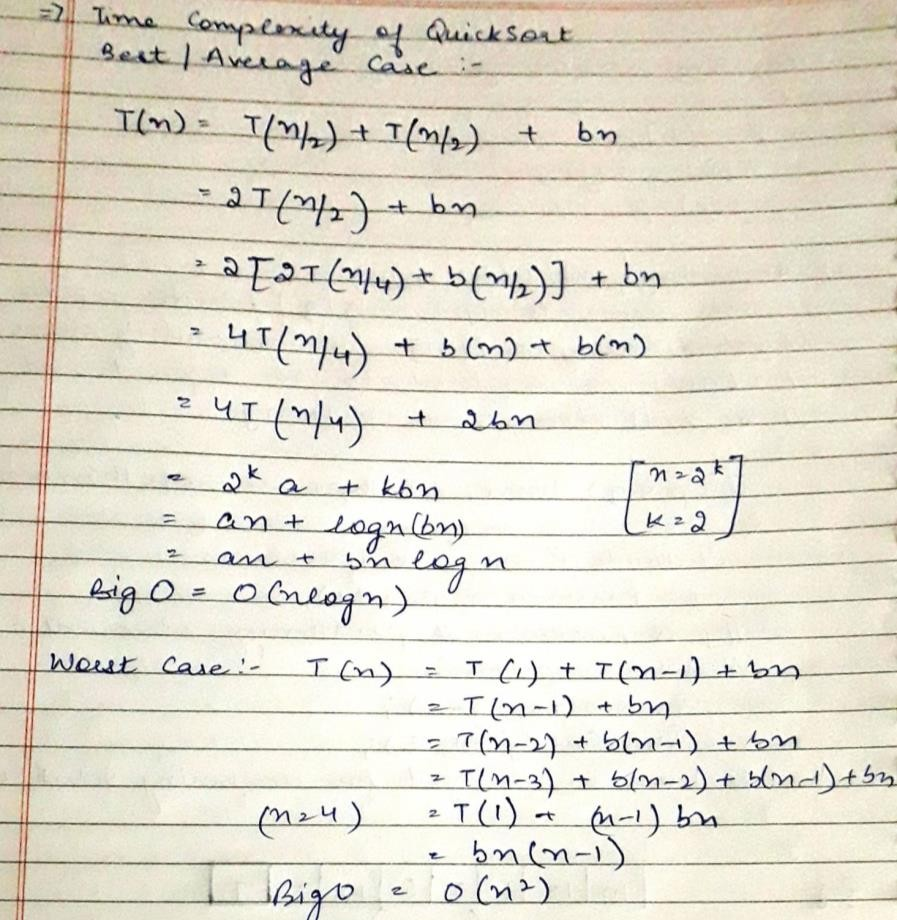 => Time Complexity of Quicksort
Best / Average Case :-
T(n) = T(n/2) + T(n/2) + bn
= 2T(n/2) + bn
= 2[2T(n/4) + b(n/2)] + bn
= 4T(n/4) + b(n) + b(n)
= 4T(n/4) + 2bn
= 2^k a + kbn [n=2^k
= an + logn(bn) k=2]
= an + bn logn
Big O = O(nlogn)
Worst Case :- T(n) = T(1) + T(n-1) + bn
= T(n-1) + bn
= T(n-2) + b(n-1) + bn
= T(n-3) + b(n-2) + b(n-1) + bn
(n=4) = T(1) + (n-1) bn
= bn(n-1)
Big O = O(n²)